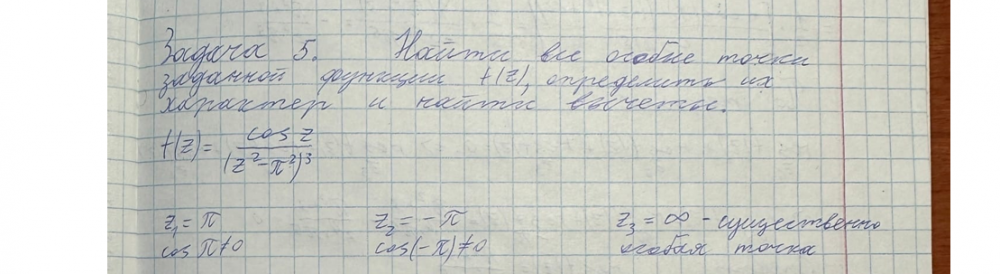 Задача 5. Найти все особые точки
заданной функции f(z), определить их
характер и найти вычеты.
f(z) = cos z / (z² - π²)³
z₁ = π z₂ = -π z₃ = ∞ - существенно
cos π ≠ 0 cos(-π) ≠ 0 особая точка